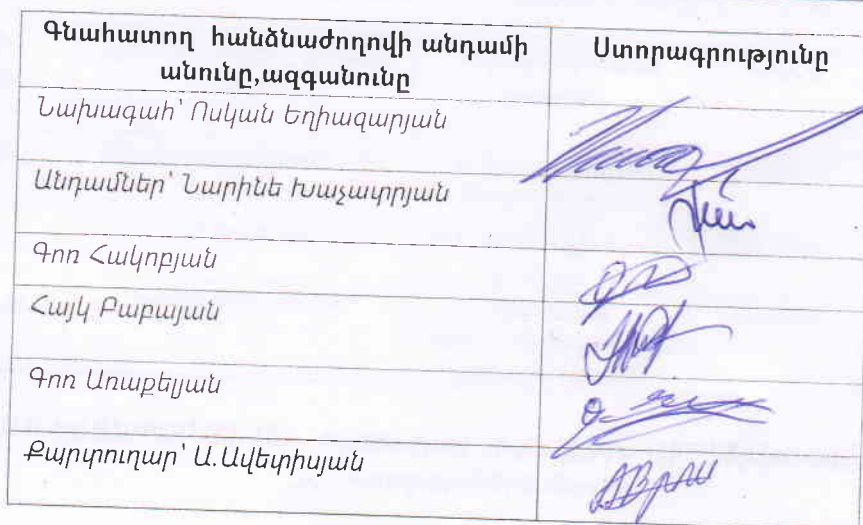 Գնահատող հանձնաժողովի անդամի Ստորագրությունը
անունը,ազգանունը
Նախագահ՝ Ոսկան Եղիազարյան
Անդամներ՝ Նարինե Խաչատրյան
Գոռ Հակոբյան
Հայկ Բաբայան
Գոռ Առաքելյան
Քարտուղար՝ Ա.Ավետիսյան